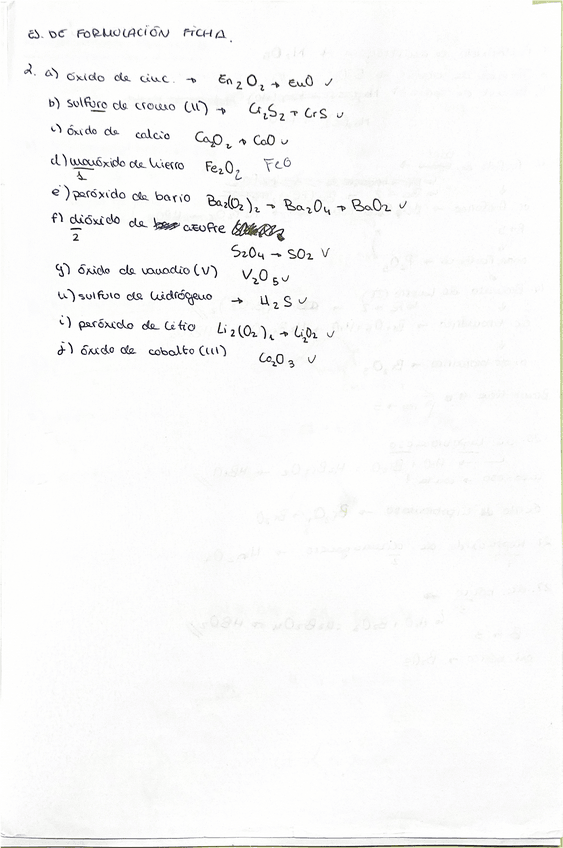 EJ. DE FORMULACIÓN FICHA.
2. a) óxido de cinc. → Zn2O2 → ZnO ✓
b) sulfuro de cromo (II) → Cr2S2 → CrS ✓
c) óxido de calcio Ca2O2 → CaO ✓
d) monóxido de hierro Fe2O2 FeO
1
e) peróxido de bario Ba2(O2)2 → Ba2O4 → BaO2 ✓
f) dióxido de azufre
2
S2O4 → SO2 ✓
g) óxido de vanadio (V) V2O5 ✓
h) sulfuro de hidrógeno → H2S ✓
i) peróxido de litio Li2(O2)1 → Li2O2 ✓
j) óxido de cobalto (III) Co2O3 ✓